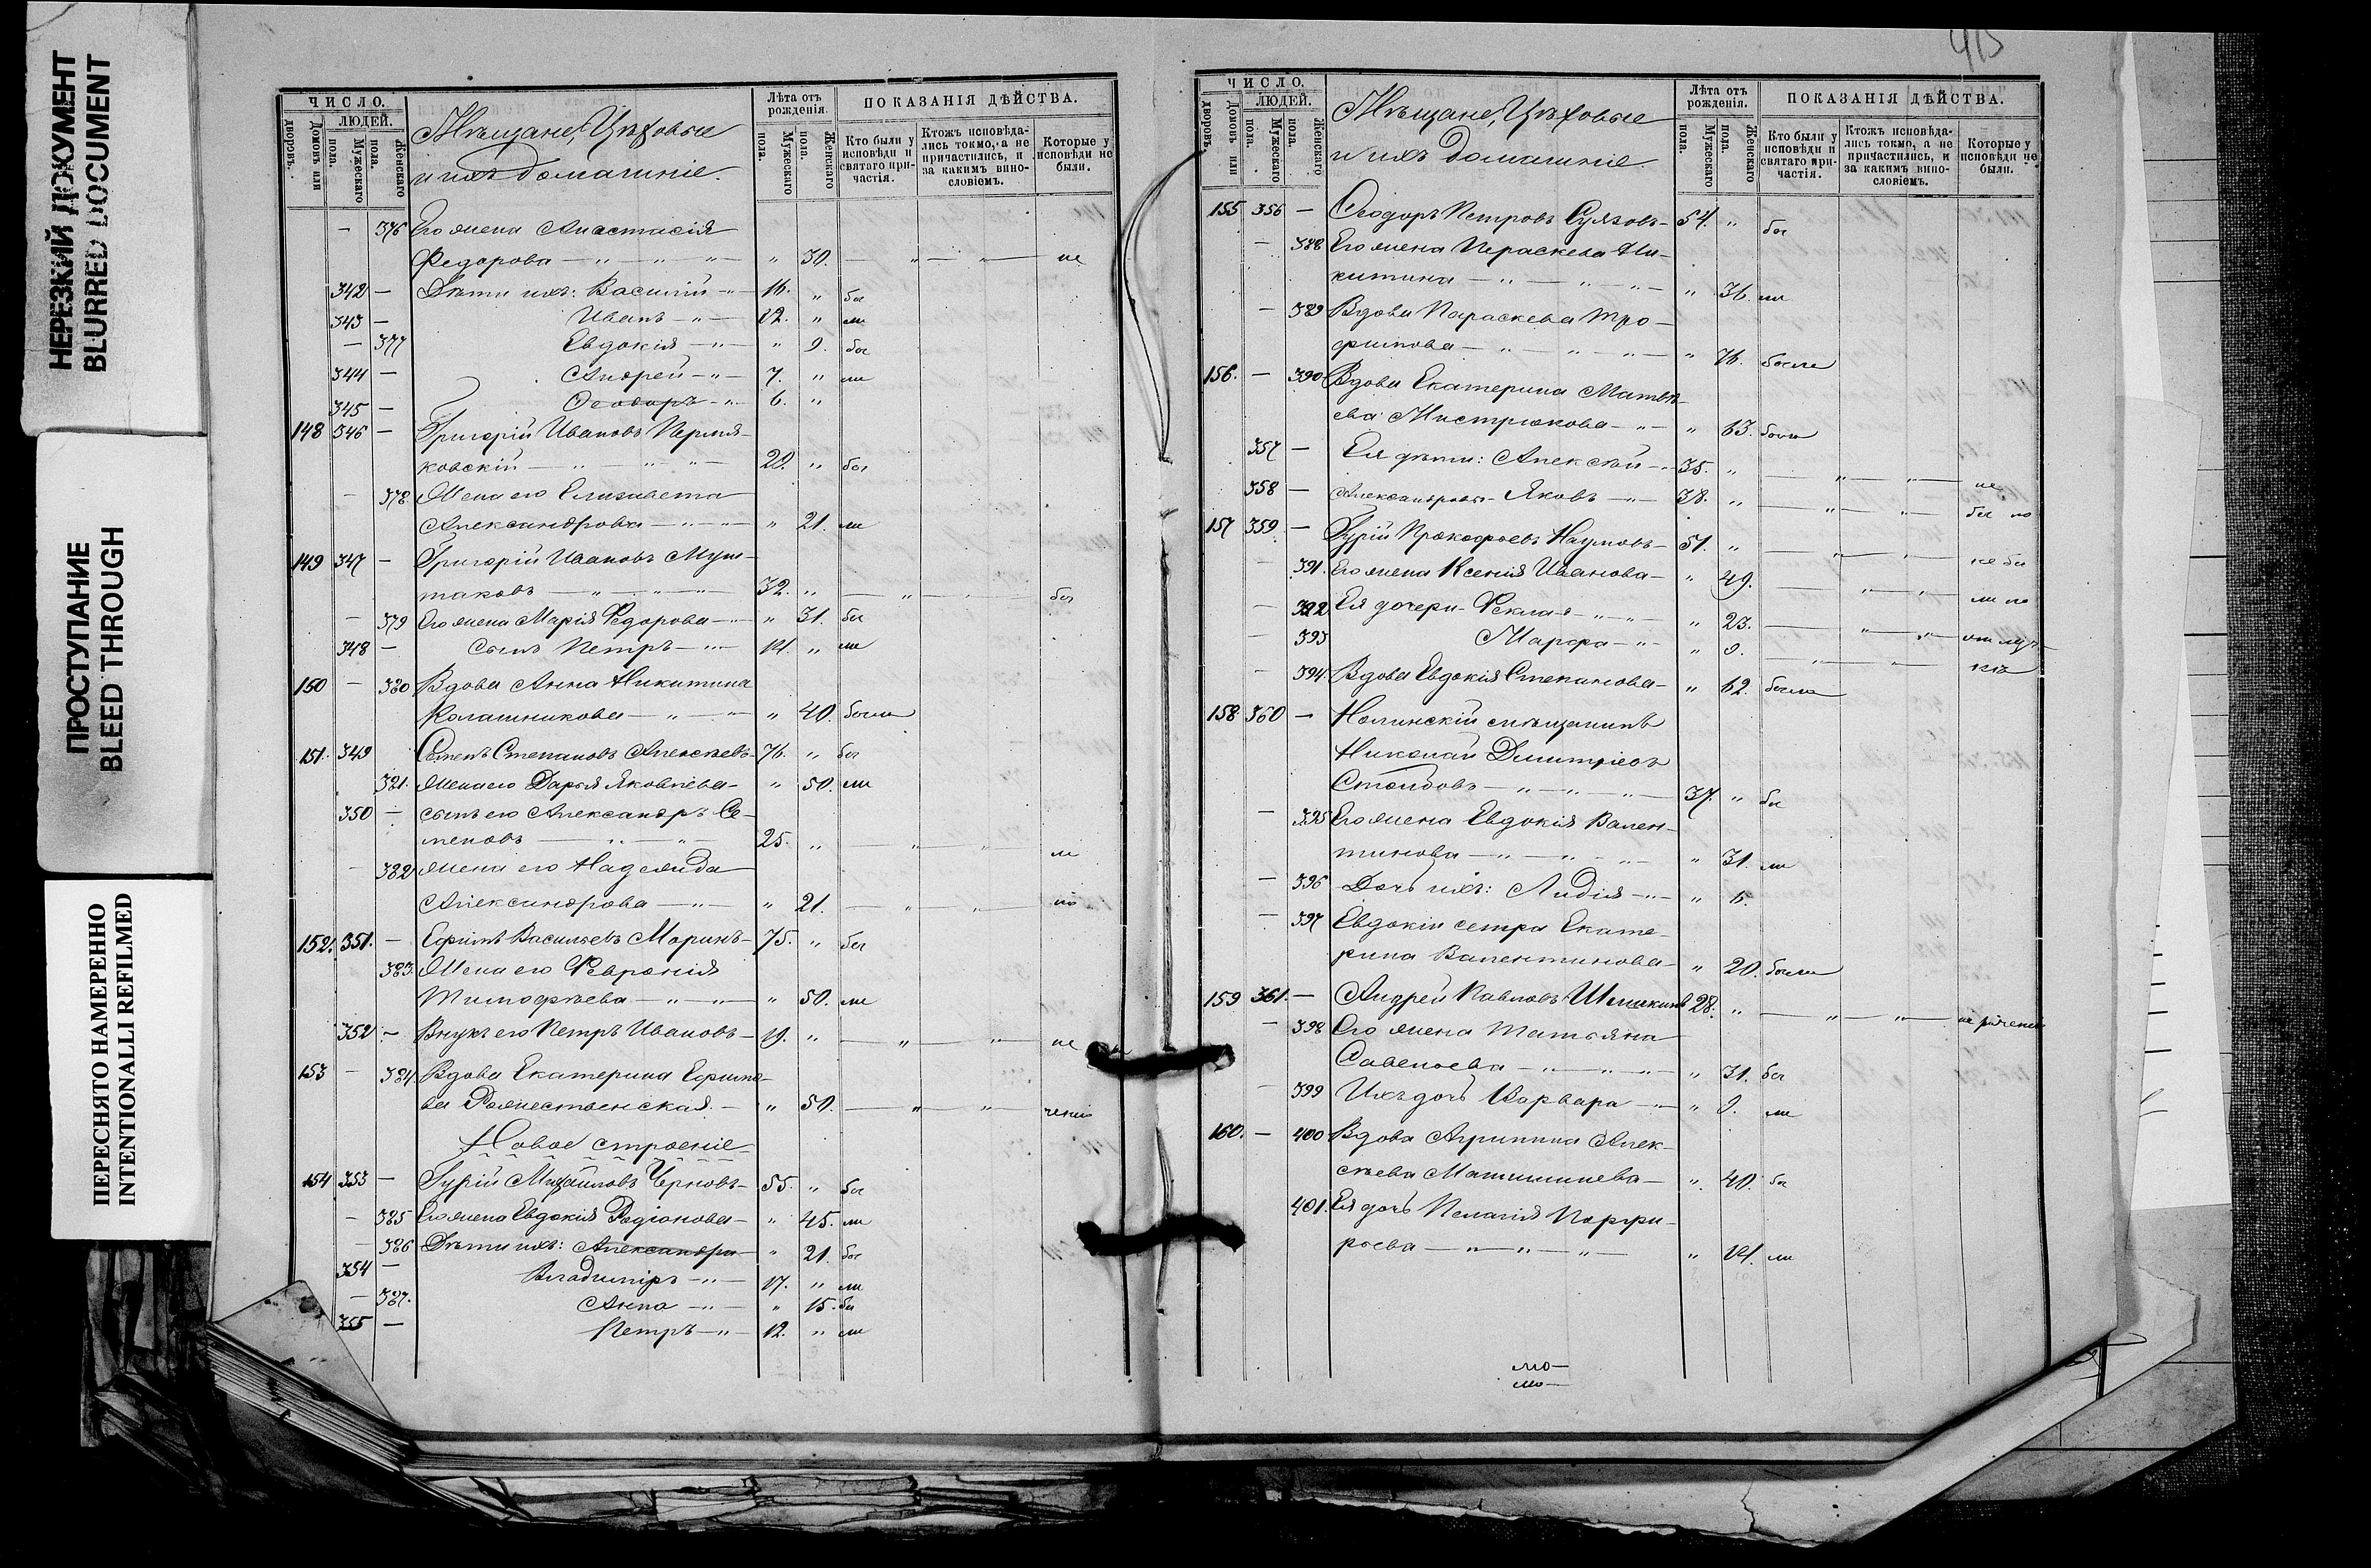 НЕРЕЗКИЙ ДОКУМЕНТ
BLURRED DOCUMENT
ПРОСТУПАНИЕ
BLEED THROUGH
ПЕРЕСНЯТО НАМЕРЕННО
INTENTIONALLI REFILMED
ЧИСЛО.
ЛЮДЕЙ.
Домовъ или дворовъ.
Мужескаго пола.
Женскаго пола.
Мѣщане, Цѣховые
и ихъ домашніе.
Лѣта отъ рожденія.
Мужескаго пола.
Женскаго пола.
ПОКАЗАНІЯ ДѢЙСТВА.
Кто были у исповѣди и святаго причастія.
Ктожъ исповѣдались токмо, а не причастились, и за какимъ винословіемъ.
Которые у исповѣди не были.
— 376 Его жена Анастасія
Федорова — " — " — " 30. — " — " — не
342 — Дѣти ихъ: Василій — " — 16. " бы
343 — Иванъ — " — 12. " ли
— 377 Евдокія — " — " 9. бы
344 — Андрей — " — 7. " ли
345 — Ѳеодоръ — " — 6. "
148 346 — Григорій Ивановъ Пермя-
ковскій — " — " — " — 29. " бы
— 378 Жена его Елизавета
Александровна — " — " — " 21. ли
149 347 — Григорій Ивановъ Муш-
таковъ — " — " — 32. " — " — " — бы
— 379 Его жена Марія Федорова — " — " 31. бы
348 — Сынъ Петръ — " — 14. " ли
150 — 380 Вдова Анна Никитина
Калашникова — " — " — " 40. были
151. 349 Семенъ Степановъ Алексѣевъ — 76. " бы
381. Жена его Дарья Яковлева — " 50. ли
350 — сынъ его Александръ Се-
меновъ — " — " — 25. " " " ли
— 382 жена его Надежда
Александрова — " — " 21. — " " по
152. 351. — Ефимъ Васильевъ Маринъ — 75. " бы
383. Жена его Февронія
Тимофѣева — " — " — " 50. ли
352 — Внукъ его Петръ Ивановъ — 19. " — " — " — не
153 — 384. Вдова Екатерина Ефимо-
ва Рожественская. — " 50. — " — " —
Новое строеніе
154 353 — Гурій Михайловъ Черновъ — 55. " бы
— 385 Его жена Евдокія Родіонова — " 45. ли
— 386 Дѣти ихъ: Александра — " 21. бы
354 — Владиміръ — " — 17. " ли
— 387. Анна — " — " 15. бы
355 — Петръ — " — 12. " ли
415
ЧИСЛО.
ЛЮДЕЙ.
Домовъ или дворовъ.
Мужескаго пола.
Женскаго пола.
Мѣщане, Цѣховые
и ихъ домашніе.
Лѣта отъ рожденія.
Мужескаго пола.
Женскаго пола.
ПОКАЗАНІЯ ДѢЙСТВА.
Кто были у исповѣди и святаго причастія.
Ктожъ исповѣдались токмо, а не причастились, и за какимъ винословіемъ.
Которые у исповѣди не были.
155 356 — Ѳеодоръ Петровъ — 54. " бы
— 388 Его жена Параскева Ни-
китина — " — " — " — " 36. ли
— 389 Вдова Параскева Тро-
фимова — " — " — " — " 76. были
156. — 390 Вдова Екатерина Матвѣ-
ева Мистрюкова — " — " 63. были
357 — Ея дѣти: Алексѣй — " 35. " — " — " — не
358 — Александровы — Яковъ — " — 38. " — " — " — бы по
157 359 — Гурій Прокофьевъ Наумовъ — 51. " — " — " — не бы
— 391. Его жена Ксенія Иванова — " 49. — " — " — ли по
— 392 Ея дочери — Фекла — " — " — " 23. — " — " — отлуч-
— 393 Марфа — " — " 9. — " — " —
— 394. Вдова Евдокія Степанова — " 62. были
158 360 — Нолинскій мѣщанинъ
Николай Димитріевъ
Столбовъ — " — " — " — 37. " бы
— 395 Его жена Евдокія Вален-
тинова — " — " — " — " 31. ли
— 396 Дочь ихъ: Лидія — " — " 6.
— 397 Евдокіи сестра Екате-
рина Валентинова — " 20. были
159 361. — Андрей Павловъ 28. " — " — " —
— 398 Его жена Татьяна
Савельева — " — " — " — " 31. бы
— 399 Ихъ дочь Варвара — " — " 9. ли
160. — 400 Вдова Агрипина Алек-
сѣева — " 40. бы
401. Ея дочь Пелагія Порфи-
рьева — " — " — " — " 14. ли